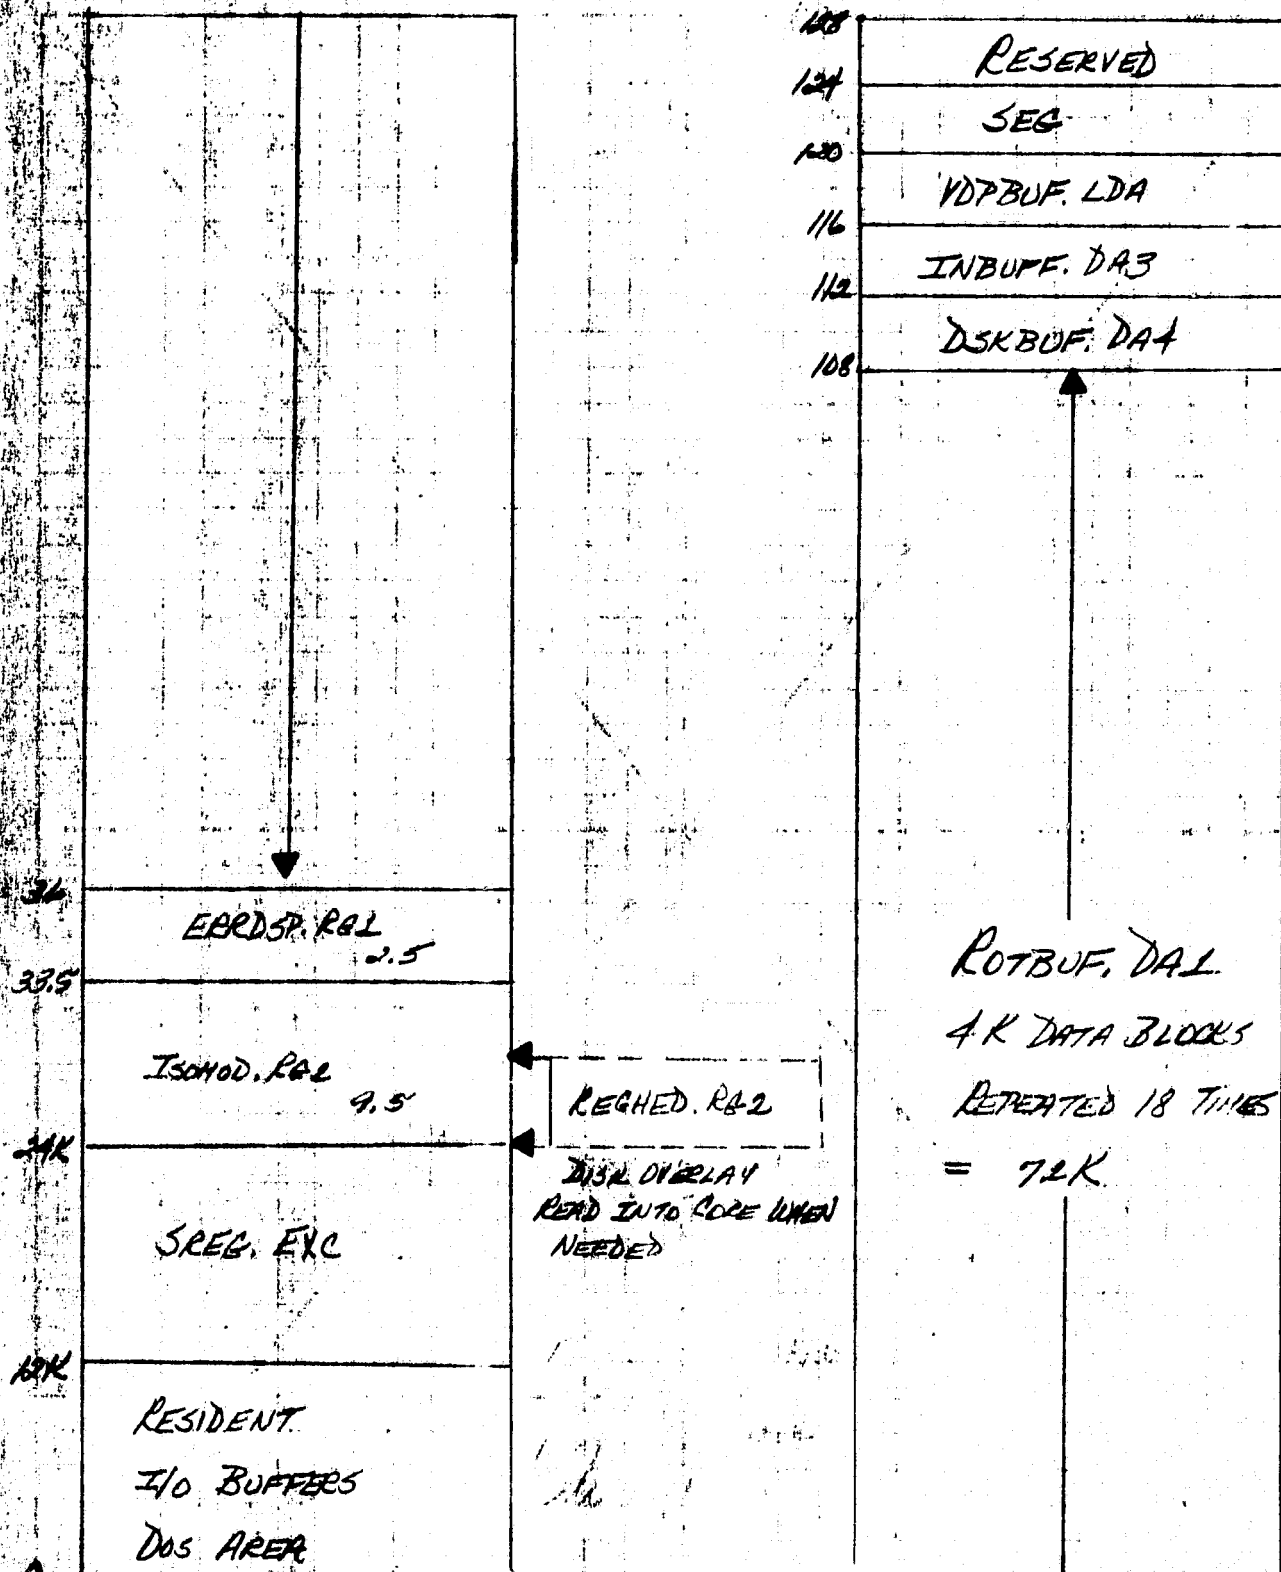 36
EBRDSP. RG1
2.5
33.5
ISOMOD. RG2
9.5
24K
SREG. EXC
12K
RESIDENT
I/O BUFFERS
DOS AREA
REGHED. RG2
DISK OVERLAY
READ INTO CORE WHEN
NEEDED
128
RESERVED
124
SEG
120
VDPBUF. LDA
116
INBUFF. DA3
112
DSKBUF. DA4
108
ROTBUF. DA1
4K DATA BLOCKS
REPEATED 18 TIMES
= 72K